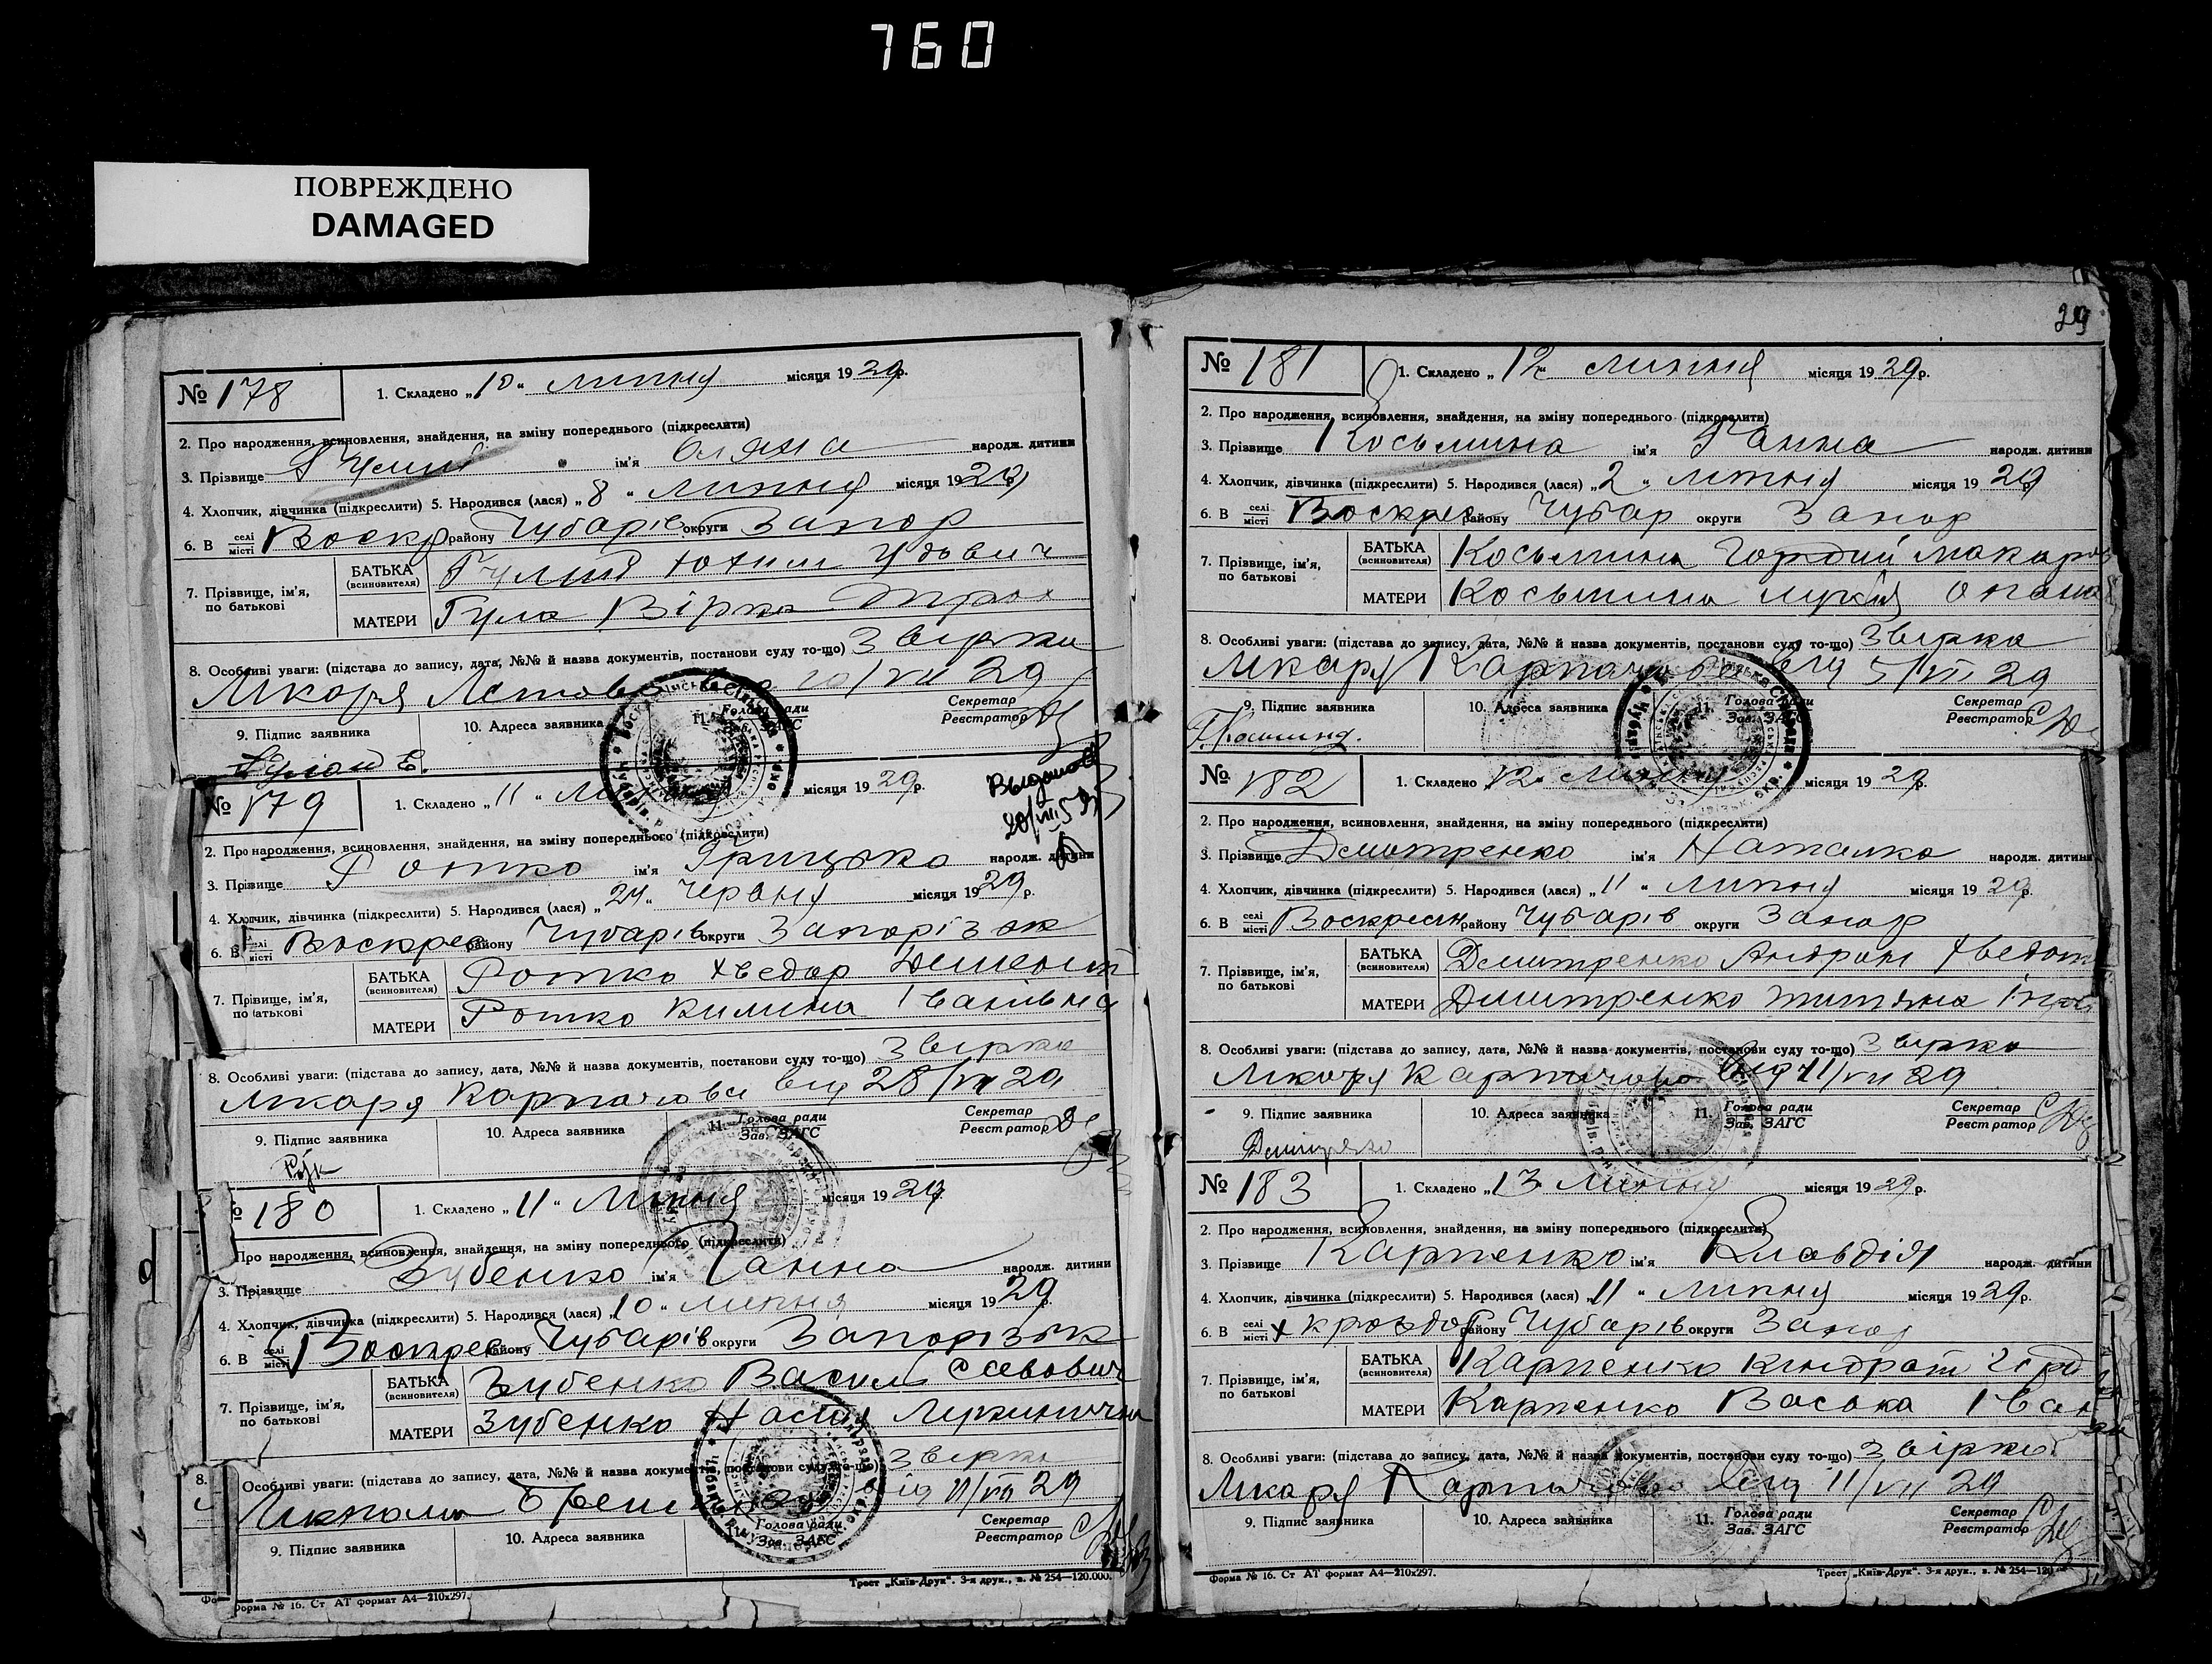 760
ПОВРЕЖДЕНО
DAMAGED
№ 178
1. Складено „10“ липня місяця 1929р.
2. Про народження, всиновлення, знайдення, на зміну попереднього (підкреслити)
3. Прізвище Гулий ім'я Оляна народж. дитини
4. Хлопчик, дівчинка (підкреслити) 5. Народився (лася) „8“ липня місяця 1929
6. В селі місті Воскр району Чубарів округи Запор
7. Прізвище, ім'я, по батькові
БАТЬКА (всиновителя) Гулий Юхим
МАТЕРИ Гула Вірка
8. Особливі уваги: (підстава до запису, дата, №№ й назва документів, постанови суду то-що) Звірки
Лікаря 10/VII 29
9. Підпис заявника
10. Адреса заявника
11. Голова ради Зав. ЗАГС
Секретар Реєстратор
№ 179
1. Складено „11“ липня місяця 1929р.
2. Про народження, всиновлення, знайдення, на зміну попереднього (підкреслити)
3. Прізвище Ротко ім'я Грицько народж. дитини
4. Хлопчик, дівчинка (підкреслити) 5. Народився (лася) „24“ червня місяця 1929 р.
6. В селі місті Воскрес району Чубарів округи Запоріжж
7. Прізвище, ім'я, по батькові
БАТЬКА (всиновителя) Ротко Хведор Демент
МАТЕРИ Ротко Килина Іванівна
8. Особливі уваги: (підстава до запису, дата, №№ й назва документів, постанови суду то-що) Звірка
Лікаря Карпачова від 28/VI 29
9. Підпис заявника
10. Адреса заявника
11. Голова ради Зав. ЗАГС
Секретар Реєстратор
№ 180
1. Складено „11“ Липня місяця 1929р.
Про народження, всиновлення, знайдення, на зміну попереднього (підкреслити)
3. Прізвище Зубенко ім'я Ганна народж. дитини
4. Хлопчик, дівчинка (підкреслити) 5. Народився (лася) „10“ липня місяця 1929 р.
6. В селі місті Воскрес району Чубарів округи Запорізьк
7. Прізвище, ім'я, по батькові
БАТЬКА (всиновителя) Зубенко Василь Савович
МАТЕРИ Зубенко Настя
8. Особливі уваги: (підстава до запису, дата, №№ й назва документів, постанови суду то-що) Звірка
від 11/VII 29
9. Підпис заявника
10. Адреса заявника
11. Голова ради Зав. ЗАГС
Секретар Реєстратор
Форма № 16. Ст АТ формат А4—210х297.
Трест „Київ-Друк“. 3-я друк., в. № 254—120.000.
29
№ 181
1. Складено „12“ липня місяця 1929р.
2. Про народження, всиновлення, знайдення, на зміну попереднього (підкреслити)
3. Прізвище Косьмина ім'я Ганна народж. дитини
4. Хлопчик, дівчинка (підкреслити) 5. Народився (лася) „2“ липня місяця 1929
6. В селі місті Воскрес району Чубар округи Запор
7. Прізвище, ім'я, по батькові
БАТЬКА (всиновителя) Косьмина Гордий Макаров
МАТЕРИ Косьмина
8. Особливі уваги: (підстава до запису, дата, №№ й назва документів, постанови суду то-що) Звірка
Лікаря Карпачова від 5/VII 29
9. Підпис заявника
10. Адреса заявника
11. Голова ради Зав. ЗАГС
Секретар Реєстратор
№ 182
1. Складено „12“ липня місяця 1929р.
2. Про народження, всиновлення, знайдення, на зміну попереднього (підкреслити)
3. Прізвище Дмитренко ім'я Наталка народж. дитини
4. Хлопчик, дівчинка (підкреслити) 5. Народився (лася) „11“ липня місяця 1929р.
6. В селі місті Воскресен району Чубарів округи Запор
7. Прізвище, ім'я, по батькові
БАТЬКА (всиновителя) Дмитренко Андрій Хведот
МАТЕРИ Дмитренко
8. Особливі уваги: (підстава до запису, дата, №№ й назва документів, постанови суду то-що) Звірка
Лікаря Карпачова від 11/VII 29
9. Підпис заявника
10. Адреса заявника
11. Голова ради Зав. ЗАГС
Секретар Реєстратор
№ 183
1. Складено „13“ липня місяця 1929р.
2. Про народження, всиновлення, знайдення, на зміну попереднього (підкреслити)
3. Прізвище Карпенко ім'я Клавдія народж. дитини
4. Хлопчик, дівчинка (підкреслити) 5. Народився (лася) „11“ липня місяця 1929р.
6. В селі місті району Чубарів округи Запор
7. Прізвище, ім'я, по батькові
БАТЬКА (всиновителя) Карпенко Кіндрат
МАТЕРИ Карпенко Васька Іван
8. Особливі уваги: (підстава до запису, дата, №№ й назва документів, постанови суду то-що) Звірки
Лікаря Карпачова від 11/VII 29
9. Підпис заявника
10. Адреса заявника
11. Голова ради Зав. ЗАГС
Секретар Реєстратор
Форма № 16. Ст АТ формат А4—210х297.
Трест „Київ-Друк“. 3-я друк., в. № 254—120